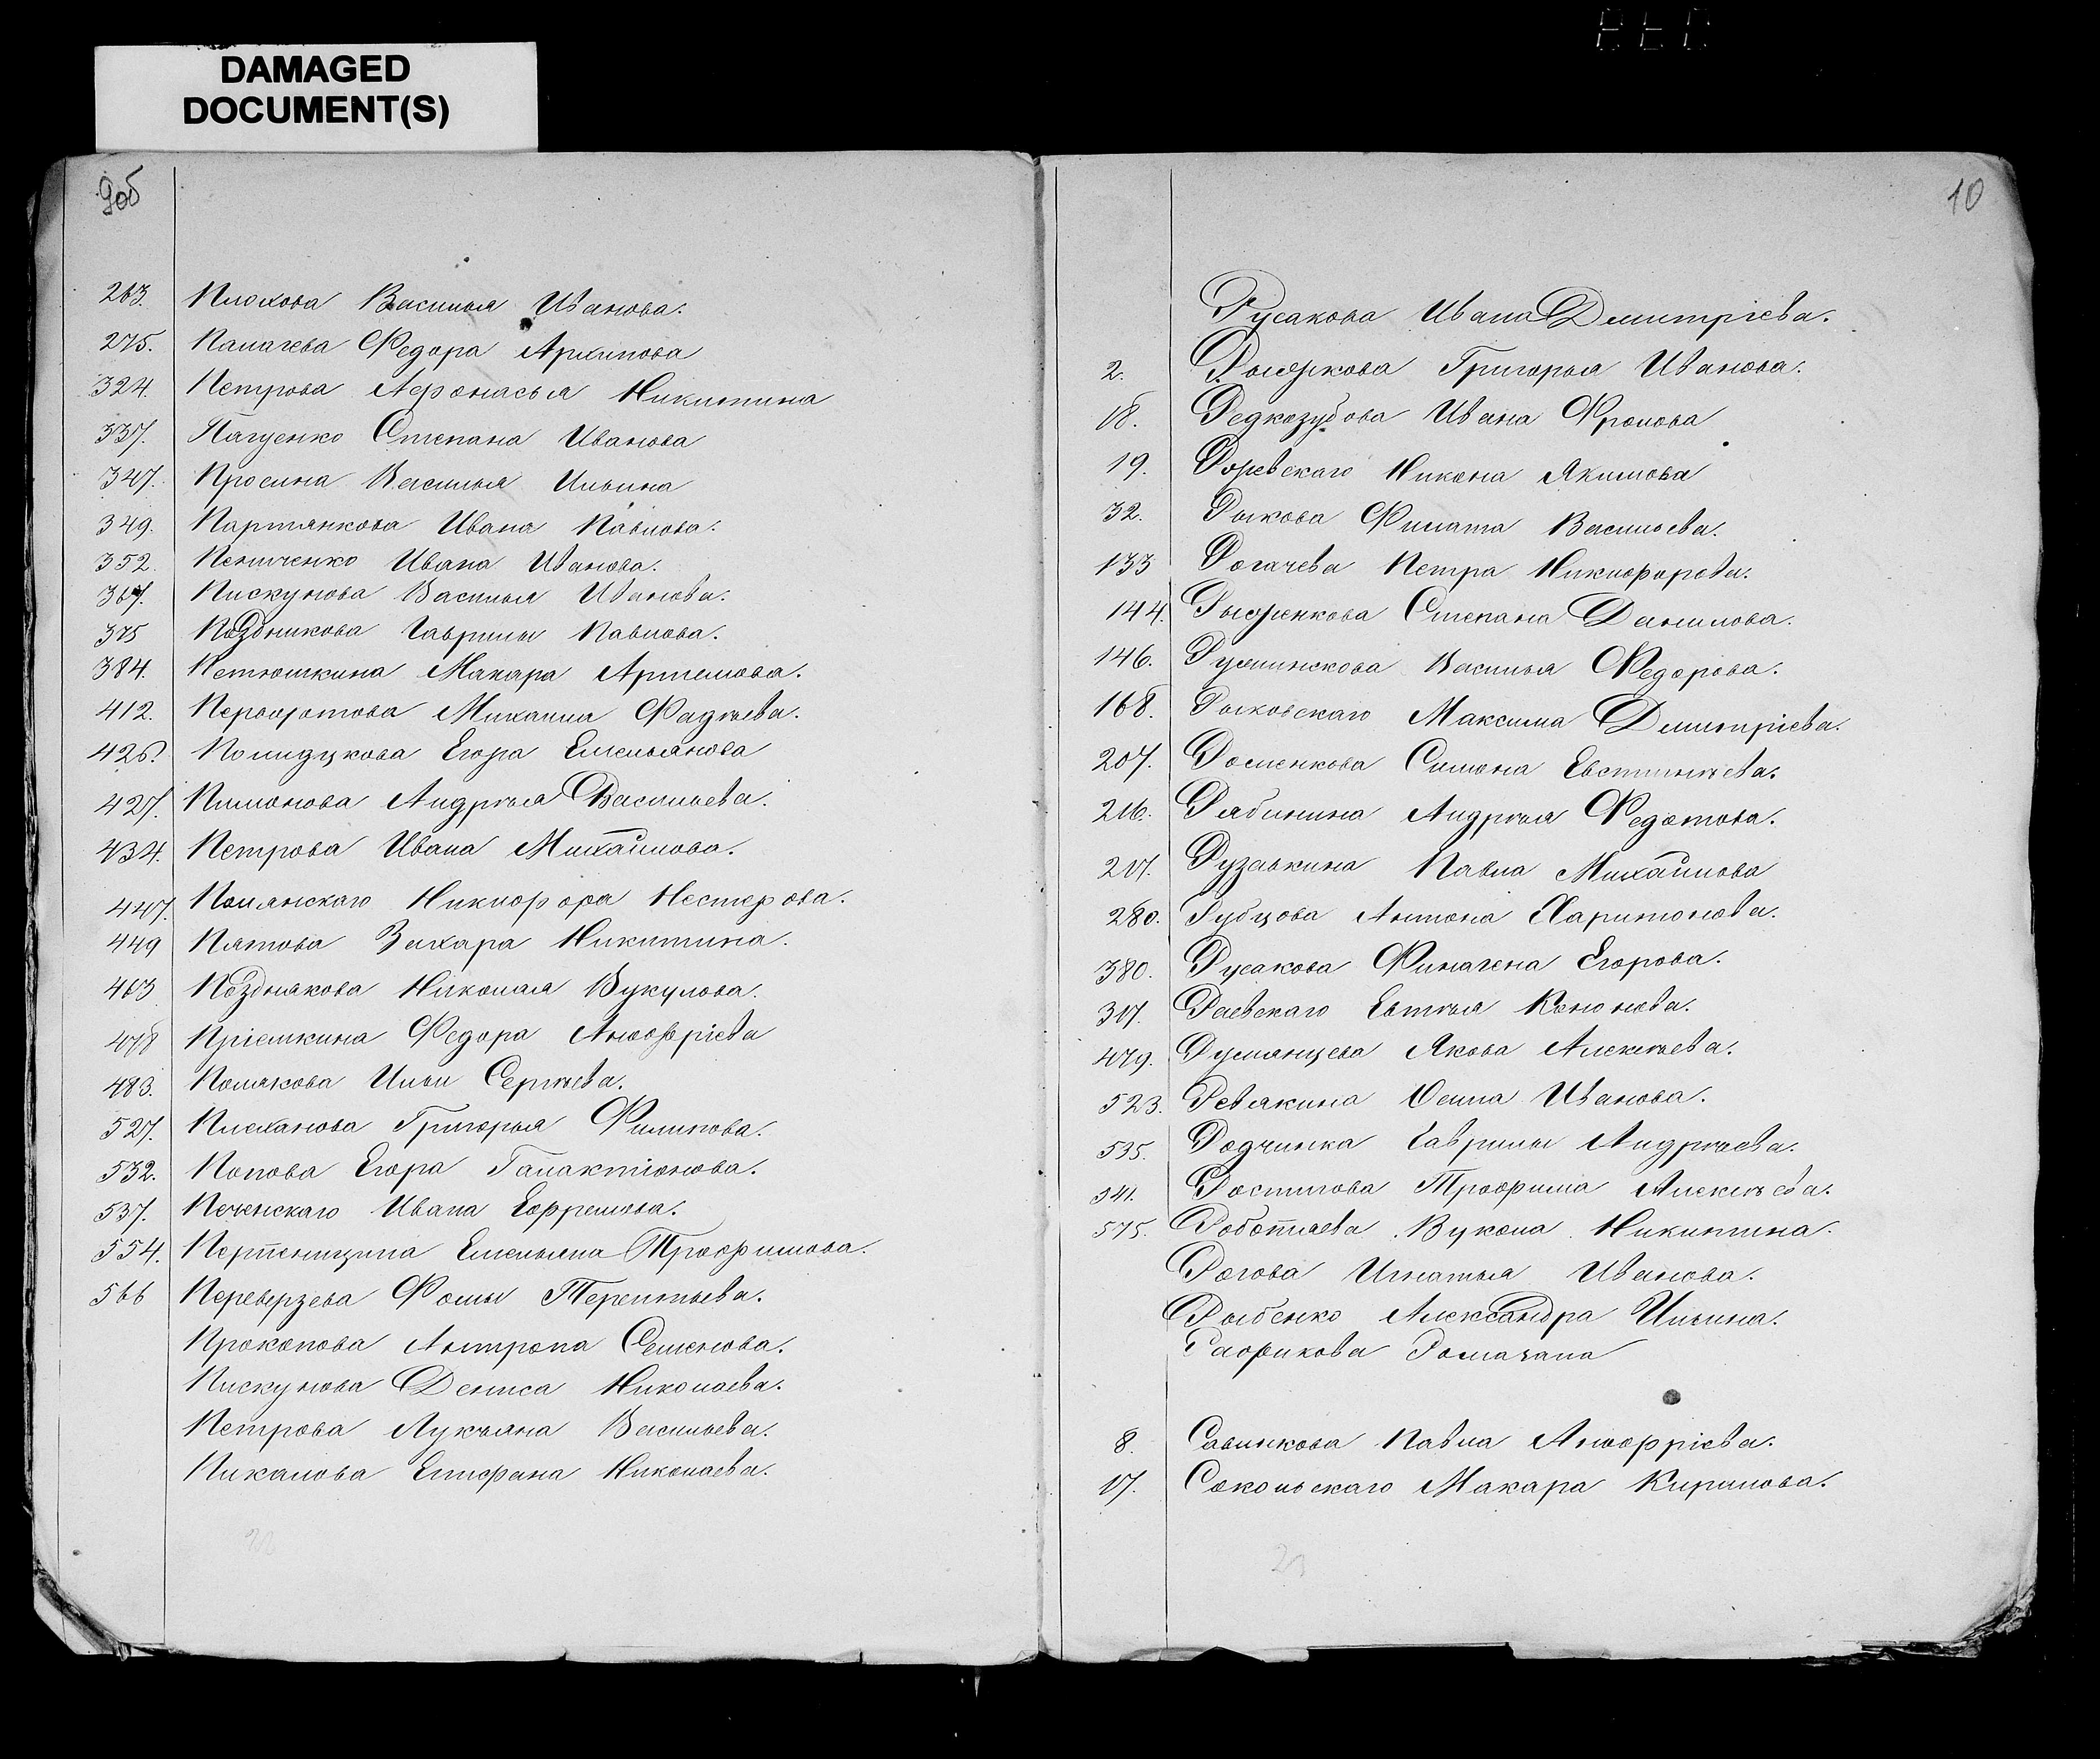 DAMAGED
DOCUMENT(S)
9об
263. Плохова Василья Иванова.
275. Палагева Федора Архипова
324. Петрова Афонасья Никитина
337. Пащенко Степана Иванова
347. Просина Василья Ильина
349. Партянкова Ивана Павлова.
352. Пениченко Ивана Иванова.
367. Пискунова Василья Иванова.
375 Поздникова Гаврилы Павлова.
384. Петюшкина Макара Артемова.
412. Михаила Фадѣева.
426. Егора Емельянова
427. Пимонова Андрѣя Васильева.
434. Петрова Ивана Михайлова.
447. Полянскаго Никифора Нестерова.
449 Пятова Захара Никитина.
463 Позднякова Николая Вукулова.
478 Пріемкина Федора Анофрieва
483. Полякова Ильи Сергѣева.
527. Плеханова Григорья Филипова.
532. Попова Егора Галактіонова.
537. Печенскаго Ивана Ефремова.
554. Емельяна Трофимова.
566 Переверзева Фомы Терентьева.
Прокопова Антропа Семенова.
Пискунова Дениса Николаева.
Петрова Лукьяна Васильева.
Пикалова Епифана Николаева.
10
Русакова Ивана Дмитріева.
2. Рыжкова Григорья Иванова.
18. Редкозубова Ивана Фролова
19. Никона Якимова
32. Рыкова Филата Васильева.
133 Рогачева Петра Никифорова.
144. Рыженкова Степана Данилова.
146. Василья Федорова.
168. Рыковскаго Максима Дмитріева.
207. Роменкова Симона Евстигнѣева.
216. Рябинина Андрѣя Федотова.
217. Рузавкина Павла Михайлова
280. Рубцова Антона Харитонова.
380. Русакова Финагена Егорова.
317. Раевскаго Евтѣя Кононова.
479. Румянцева Якова Алексѣева.
523. Ревякина Осипа Иванова.
535. Родчинка Гаврилы Андрѣева.
541. Ростигова Трофима Алексѣева.
575. Вукола Никитина.
Рогова Игнатья Иванова.
Рыбенко Александра Ильина.
8. Савинкова Павла Аноффріева.
17. Сокольскаго Макара Кирилова.